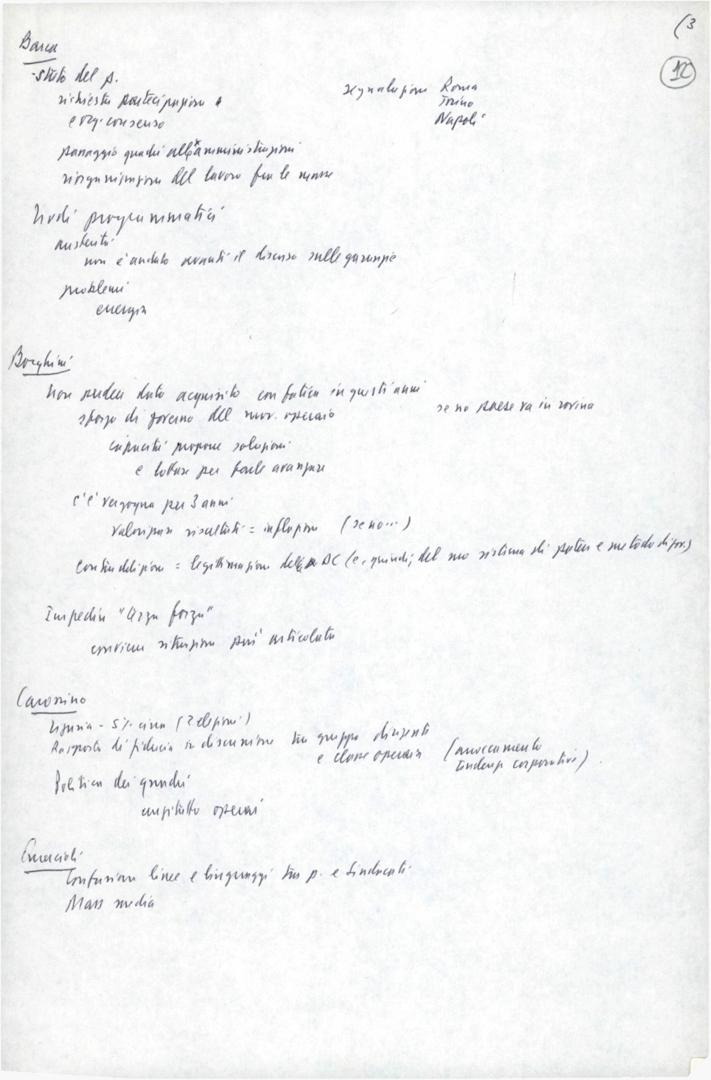 (3
12
Barca
- stato del p.
richiesta partecipazione
e org. consenso
segnalazioni Roma
Torino
Napoli
passaggio quadri all'amministrazioni
riorganizzazione del lavoro fra le masse
Nodi programmatici
austerità
non è andato avanti il discorso sulle garanzie
problemi
energia
Borghini
Non perdere dato acquisito con fatica in questi anni
sforzo di governo del mov. operaio
se no paese va in rovina
capacità proporre soluzioni
e lottare per farle avanzare
c'è vergogna per 3 anni
valorizzare risultati = inflazione (se no...)
Contraddizione = legittimazione della DC (e, quindi, del suo sistema di potere e metodo di gov.)
Impedire "terza forza"
conviene situazione più articolata
Carossino
Liguria - 5% circa (2 elezioni)
Rapporto di fiducia in discussione tra gruppo dirigenti
e classe operaia
(arroccamento
tendenze corporative)
Politica dei quadri
anzitutto operai
Confusione linee e linguaggi tra p. e sindacati
Mass media